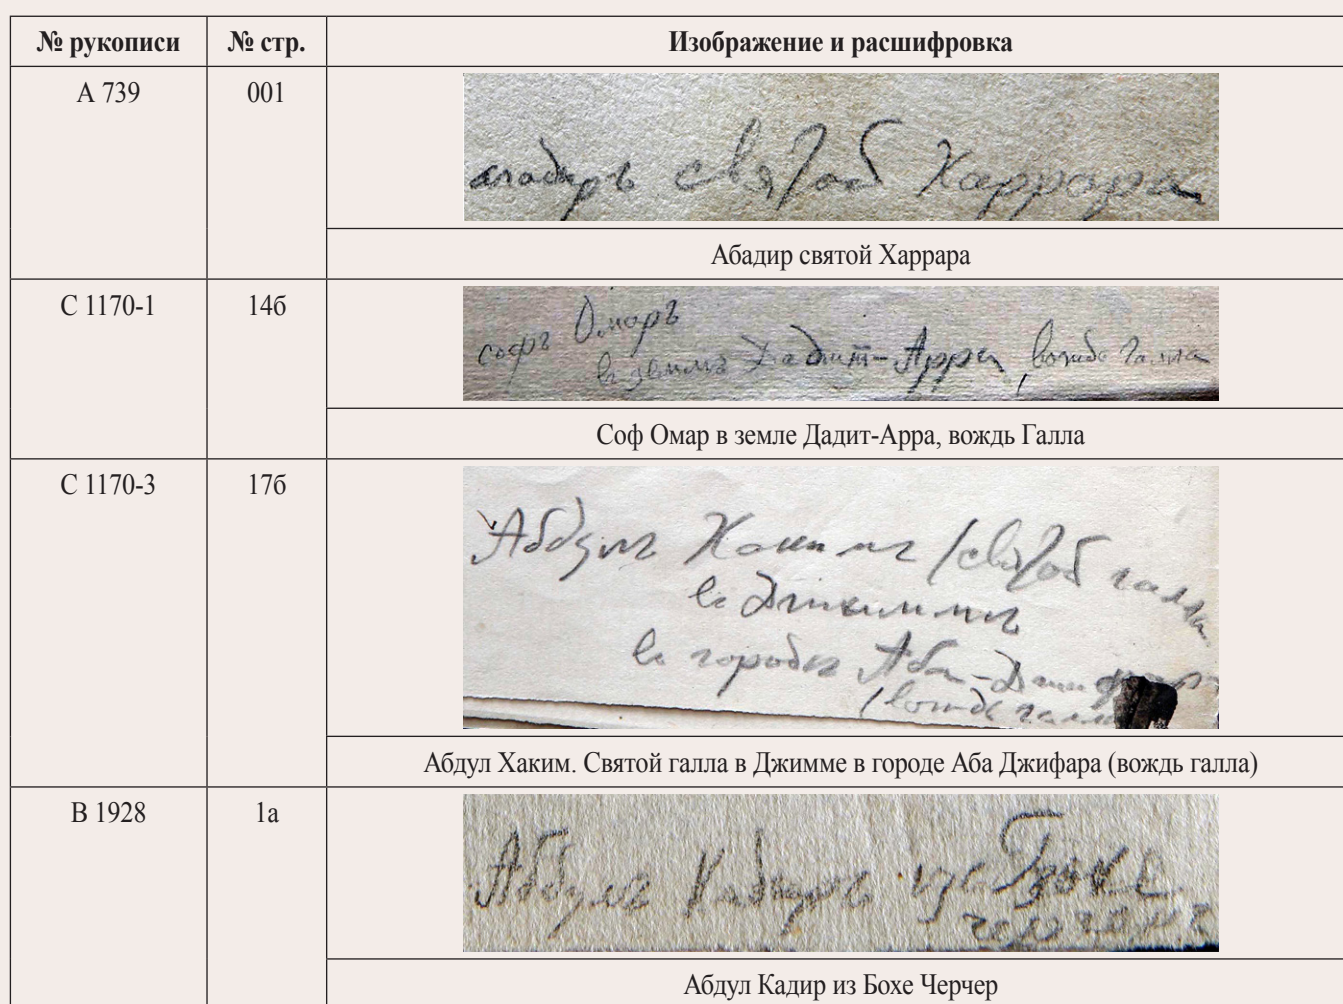 № рукописи № стр. Изображение и расшифровка
А 739 001
святой Харрара
Абадир святой Харрара
С 1170-1 14б
софъ Омаръ
въ землѣ Дадит-Арра, вождь галла
Соф Омар в земле Дадит-Арра, вождь Галла
С 1170-3 17б
Абдулъ Хакимъ (святой галла
въ Джиммѣ
въ городѣ Аба-Джифара
(вождь галла
Абдул Хаким. Святой галла в Джимме в городе Аба Джифара (вождь галла)
В 1928 1а
Абдулъ Кадиръ изъ
Абдул Кадир из Бохе Черчер